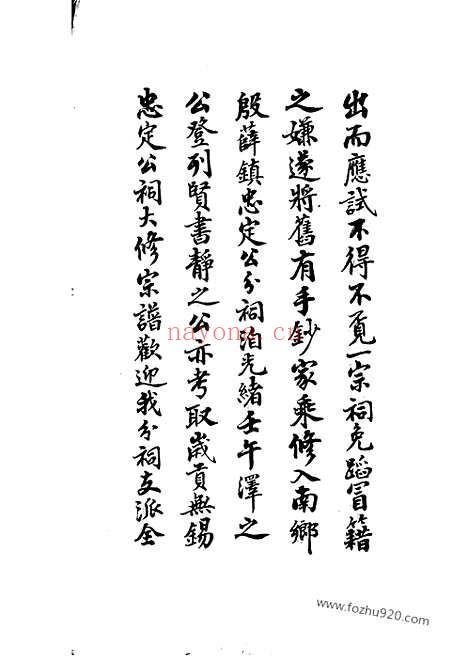 出而應試不得不覓一宗祠免蹈冒籍
之嫌遂將舊有手鈔家乘修入南鄉
殷薛鎮忠定公分祠洎光緒壬午澤之
公登列賢書靜之公亦考取歲貢無錫
忠定公祠大修宗譜歡迎我分祠支派全
nayona.cn
www.fozhu920.com